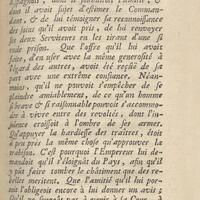 Espagnols, dont il
dont il avoit sujet d'estimer le Comman-
dant, & de lui témoigner sa reconnoissance
des soins qu'il avoit pris, de lui renvoyer
ses deux Serviteurs en les tirant d'une si
rude prison. Que l'offre qu'il lui avoit
faite, d'en user avec la même generosité à
l'égard des autres, avoit été reçuë de sa
part avec une extrême confiance. Néan-
moins, qu'il ne pouvoit s'empêcher de se
plaindre amiablement, de ce qu'un homme
si brave & si raisonnable pouvoit s'accommo-
der à vivre entre des revoltés, dont l'in-
solence croissoit à l'ombre de ses armes.
Qu'appuyer la hardiesse des traîtres, étoit
peu s'en falloir qu'approuver la
trahison. C'est pourquoi l'Empereur lui de-
mandoit qu'il s'éloignât du Pays, afin qu'il
pût faire tomber le châtiment que des re-
belles meritent. Que l'amitié qu'il lui por-
toit l'obligeoit encore à lui donner un avis;
Qu'il ne